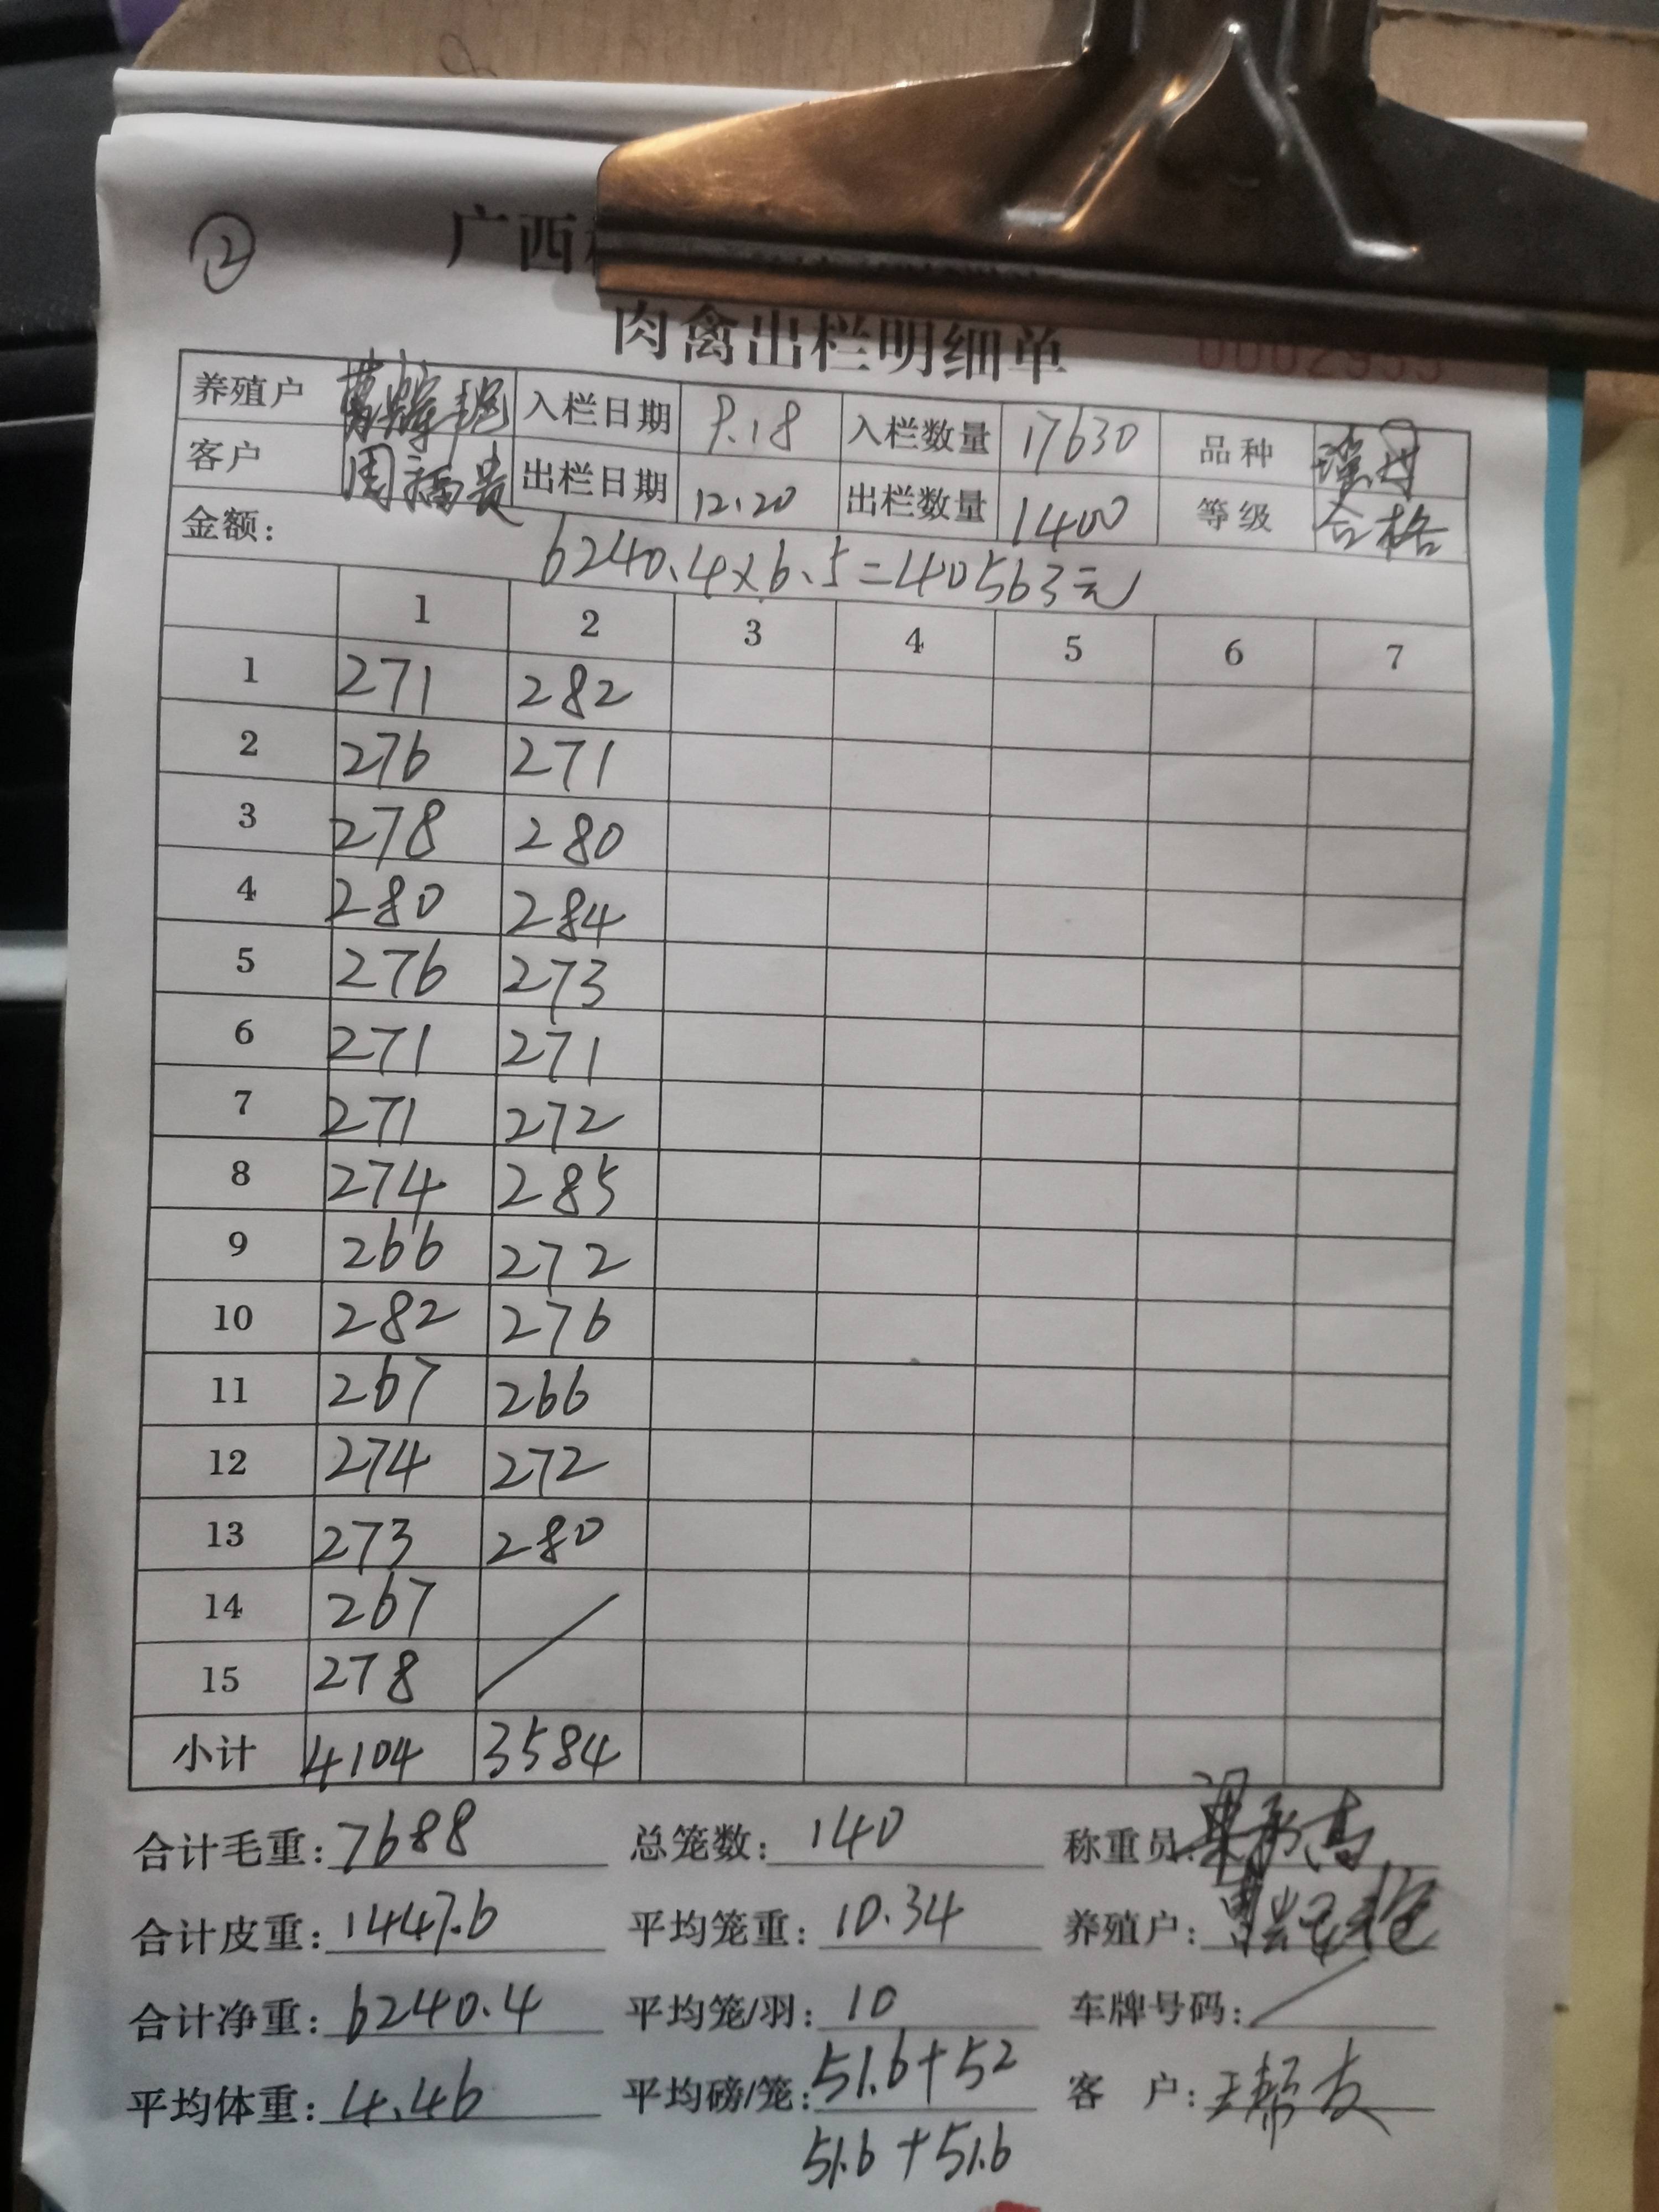 ②
广西
肉禽出栏明细单
0002953
养殖户 入栏日期 9.18 入栏数量 17630 品种
客户 周福贵 出栏日期 12.20 出栏数量 1400 等级 合格
金额: 6240.4×6.5=40563元
1 2 3 4 5 6 7
1 271 282
2 276 271
3 278 280
4 280 284
5 276 273
6 271 271
7 271 272
8 274 285
9 266 272
10 282 276
11 267 266
12 274 272
13 273 280
14 267
15 278
小计 4104 3584
合计毛重: 7688 总笼数: 140 称重员:
合计皮重: 1447.6 平均笼重: 10.34 养殖户:
合计净重: 6240.4 平均笼/羽: 10 车牌号码: /
平均体重: 4.46 平均磅/笼: 51.6+52 客 户:
51.6+51.6